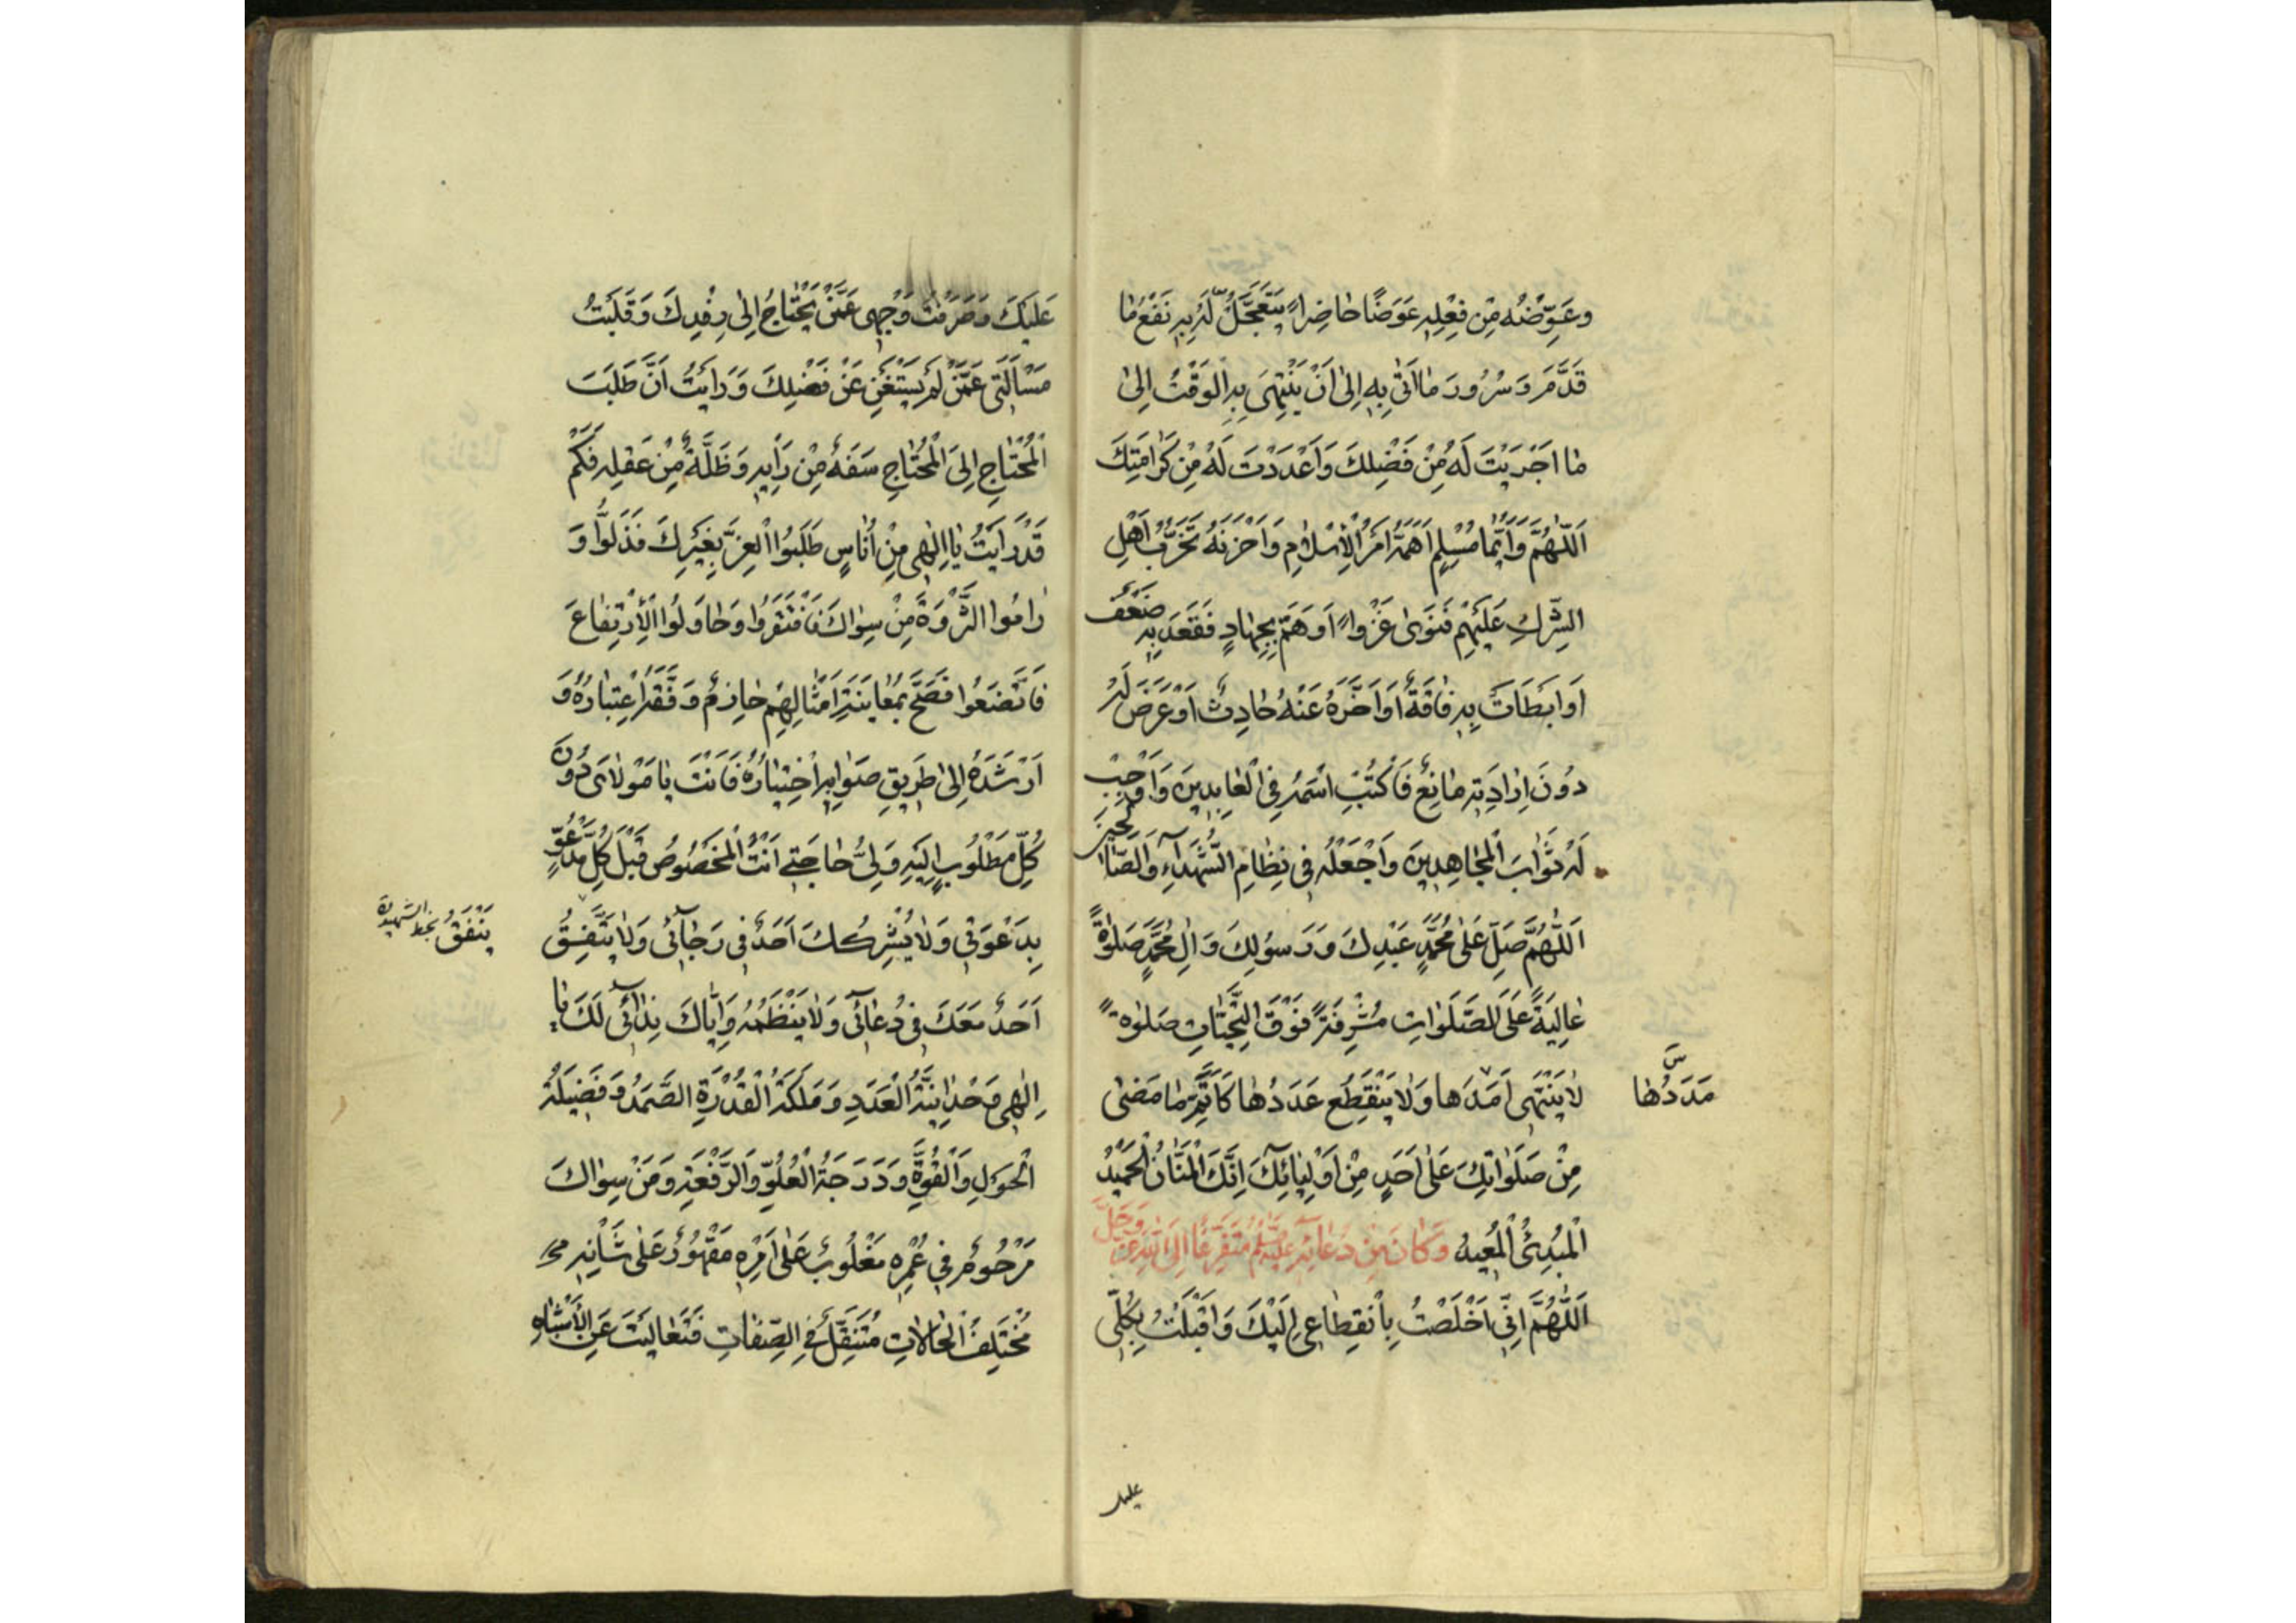 وعَوِّضْهُ مِنْ فِعْلِهِ عِوَضًا حَاضِراً يَتَعَجَّلُ لَهُ بِهِ نَفْعَ مَا
قَدَّمَ وَسُرُورَ مَا اَتَىٰ بِهِ اِلىٰ اَنْ يَنْتَهِيَ بِهِ الْوَقْتُ اِلىٰ
مَا اَجْرَيْتَ لَهُ مِنْ فَضْلِكَ وَاَعْدَدْتَ لَهُ مِنْ كَرَامَتِكَ
اَللّٰهُمَّ وَاَيُّمَا مُسْلِمٍ اَهَمَّهُ اَمْرُ الْاِسْلَامِ وَاَحْزَنَهُ تَحَزُّبُ اَهْلِ
الشِّرْكِ عَلَيْهِمْ فَنَوىٰ غَزْواً اَوْ هَمَّ بِجِهَادٍ فَقَعَدَ بِهِ ضَعْفٌ
اَوْ اَبْطَاَتْ بِهِ فَاقَةٌ اَوْ اَخَّرَهُ عَنْهُ حَادِثٌ اَوْ عَرَضَ لَهُ
دُونَ اِرَادَتِهِ مَانِعٌ فَاكْتُبْ اسْمَهُ فِي الْعَابِدِينَ وَاَوْجِبْ
لَهُ ثَوَابَ الْمُجَاهِدِينَ وَاجْعَلْهُ فِي نِظَامِ الشُّهَدَآءِ وَالصَّالِحِينَ
اَللّٰهُمَّ صَلِّ عَلىٰ مُحَمَّدٍ عَبْدِكَ وَرَسُولِكَ وَالِ مُحَمَّدٍ صَلٰوةً
عَالِيَةً عَلَى الصَّلَوَاتِ مُشْرِفَةً فَوْقَ التَّحِيَّاتِ صَلٰوةً
لَا يَنْتَهِي اَمَدُهَا وَلَا يَنْقَطِعُ عَدَدُهَا كَاَتَمِّ مَا مَضىٰ
مَدَدُهَا
س
مِنْ صَلَوَاتِكَ عَلىٰ اَحَدٍ مِنْ اَوْلِيَائِكَ اِنَّكَ الْمَنَّانُ الْحَمِيدُ
الْمُبْدِئُ الْمُعِيدُ وَكَانَ مِنْ دُعَائِهِ عَلَيْهِ السَّلَمُ مُتَفَرِّعًا اِلَى اللهِ عَزَّ وَجَلَّ
اَللّٰهُمَّ اِنِّي اَخْلَصْتُ بِانْقِطَاعِي اِلَيْكَ وَاَقْبَلْتُ بِكُلِّي
عليك
عَلَيْكَ وَصَرَفْتُ وَجْهِي عَمَّنْ يَحْتَاجُ اِلىٰ رِفْدِكَ وَقَلَبْتُ
مَسْاَلَتِي عَمَّنْ لَمْ يَسْتَغْنِ عَنْ فَضْلِكَ وَرَاَيْتُ اَنَّ طَلَبَ
الْمُحْتَاجِ اِلَى الْمُحْتَاجِ سَفَهٌ مِنْ رَاْيِهِ وَضَلَّةٌ مِنْ عَقْلِهِ فَكَمْ
قَدْ رَاَيْتُ يَا اِلٰهِي مِنْ اُنَاسٍ طَلَبُوا الْعِزَّ بِغَيْرِكَ فَذَلُّوا وَ
رَامُوا الثَّرْوَةَ مِنْ سِوَاكَ فَافْتَقَرُوا وَحَاوَلُوا الْاِرْتِفَاعَ
فَاتَّضَعُوا فَصَحَّ بِمُعَايَنَةِ اَمْثَالِهِمْ حَازِمٌ وَفَّقَهُ اعْتِبَارُهُ وَ
اَرْشَدَهُ اِلىٰ طَرِيقِ صَوَابِهِ اخْتِيَارُهُ فَاَنْتَ يَا مَوْلَايَ دُونَ
كُلِّ مَطْلُوبٍ اِلَيْهِ وَلِيُّ حَاجَتِي اَنْتَ الْمَخْصُوصُ قَبْلَ كُلِّ مَدْعُوٍّ
بِدَعْوَتِي وَلَا يُشْرِكُكَ اَحَدٌ فِي رَجَائِي وَلَا يَتَّفِقُ
يَنْفَقُ بخط الشهيد ره
اَحَدٌ مَعَكَ فِي دُعَائِي وَلَا يَنْظِمُهُ وَاِيَّاكَ نِدَائِي لَكَ يَا
اِلٰهِي وَحْدَانِيَّةُ الْعَدَدِ وَمَلَكَةُ الْقُدْرَةِ الصَّمَدِ وَفَضِيلَةُ
الْحَوْلِ وَالْقُوَّةِ وَدَرَجَةُ الْعُلُوِّ وَالرِّفْعَةِ وَمَنْ سِوَاكَ
مَرْحُومٌ فِي عُمْرِهِ مَغْلُوبٌ عَلىٰ اَمْرِهِ مَقْهُورٌ عَلىٰ شَاْنِهِ
مُخْتَلِفُ الْحَالَاتِ مُتَنَقِّلٌ فِي الصِّفَاتِ فَتَعَالَيْتَ عَنِ الْاَشْبَاهِ